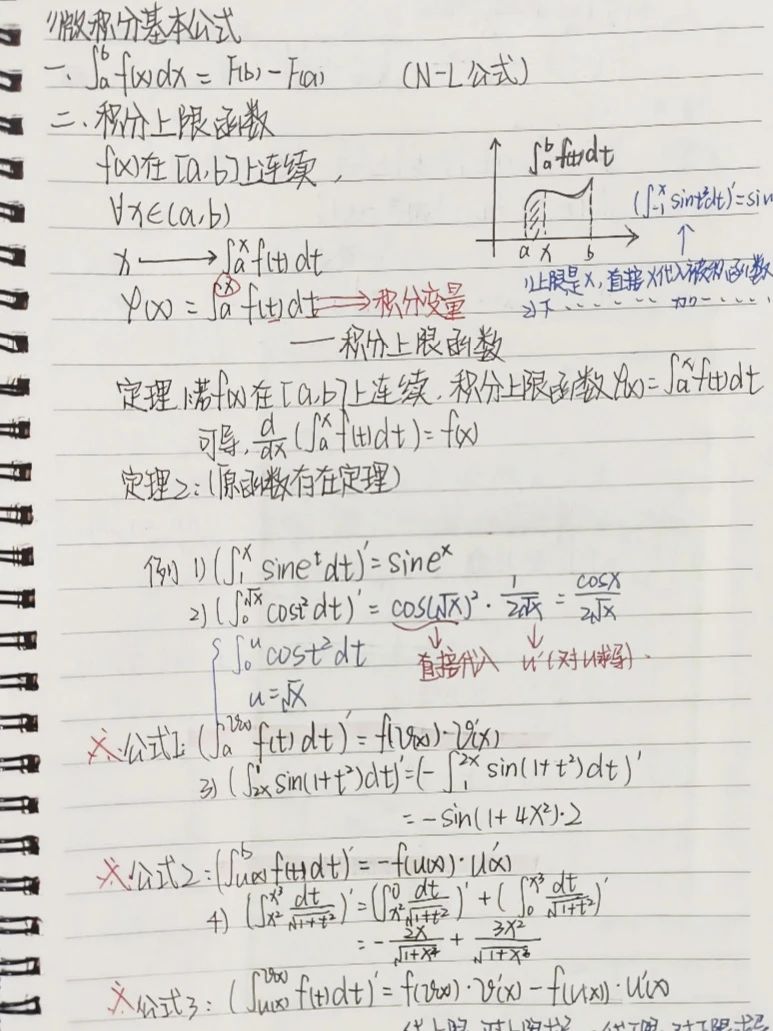 微积分基本公式
一、∫ₐᵇ f(x)dx = F(b) - F(a) (N-L公式)
二、积分上限函数
f(x)在[a,b]上连续,
∀x∈(a,b)
x ⟶ ∫ₐˣ f(t)dt
φ(x) = ∫ₐˣ f(t)dt ⟹ 积分变量
— 积分上限函数
∫ₐᵇ f(t)dt
a x b
(∫₋₁ˣ sint²dt)' = sin
↑
1)上限是x,直接x代入被积函数
2)下
定理1:若f(x)在[a,b]上连续,积分上限函数φ(x)=∫ₐˣ f(t)dt
可导, d/dx (∫ₐˣ f(t)dt) = f(x)
定理2:(原函数存在定理)
例 1) (∫₁ˣ sineᵗdt)' = sineˣ
2) (∫₀^√x cost²dt)' = cos(√x)² · 1/(2√x) = cosx/(2√x)
∫₀ᵘ cost²dt
u=√x
直接代入 u'(对u求导).
※公式1: (∫ₐ^v(x) f(t)dt)' = f(v(x))·v'(x)
3) (∫₂ₓ¹ sin(1+t²)dt)' = (-∫₁^2x sin(1+t²)dt)'
= -sin(1+4x²)·2
※公式2: (∫_u(x)^b f(t)dt)' = -f(u(x))·u'(x)
4) (∫_x²^x³ dt/√(1+t²))' = (∫_x²^0 dt/√(1+t²))' + (∫₀^x³ dt/√(1+t²))'
= - 2x/√(1+x⁴) + 3x²/√(1+x⁶)
※公式3: (∫_u(x)^v(x) f(t)dt)' = f(v(x))·v'(x) - f(u(x))·u'(x)